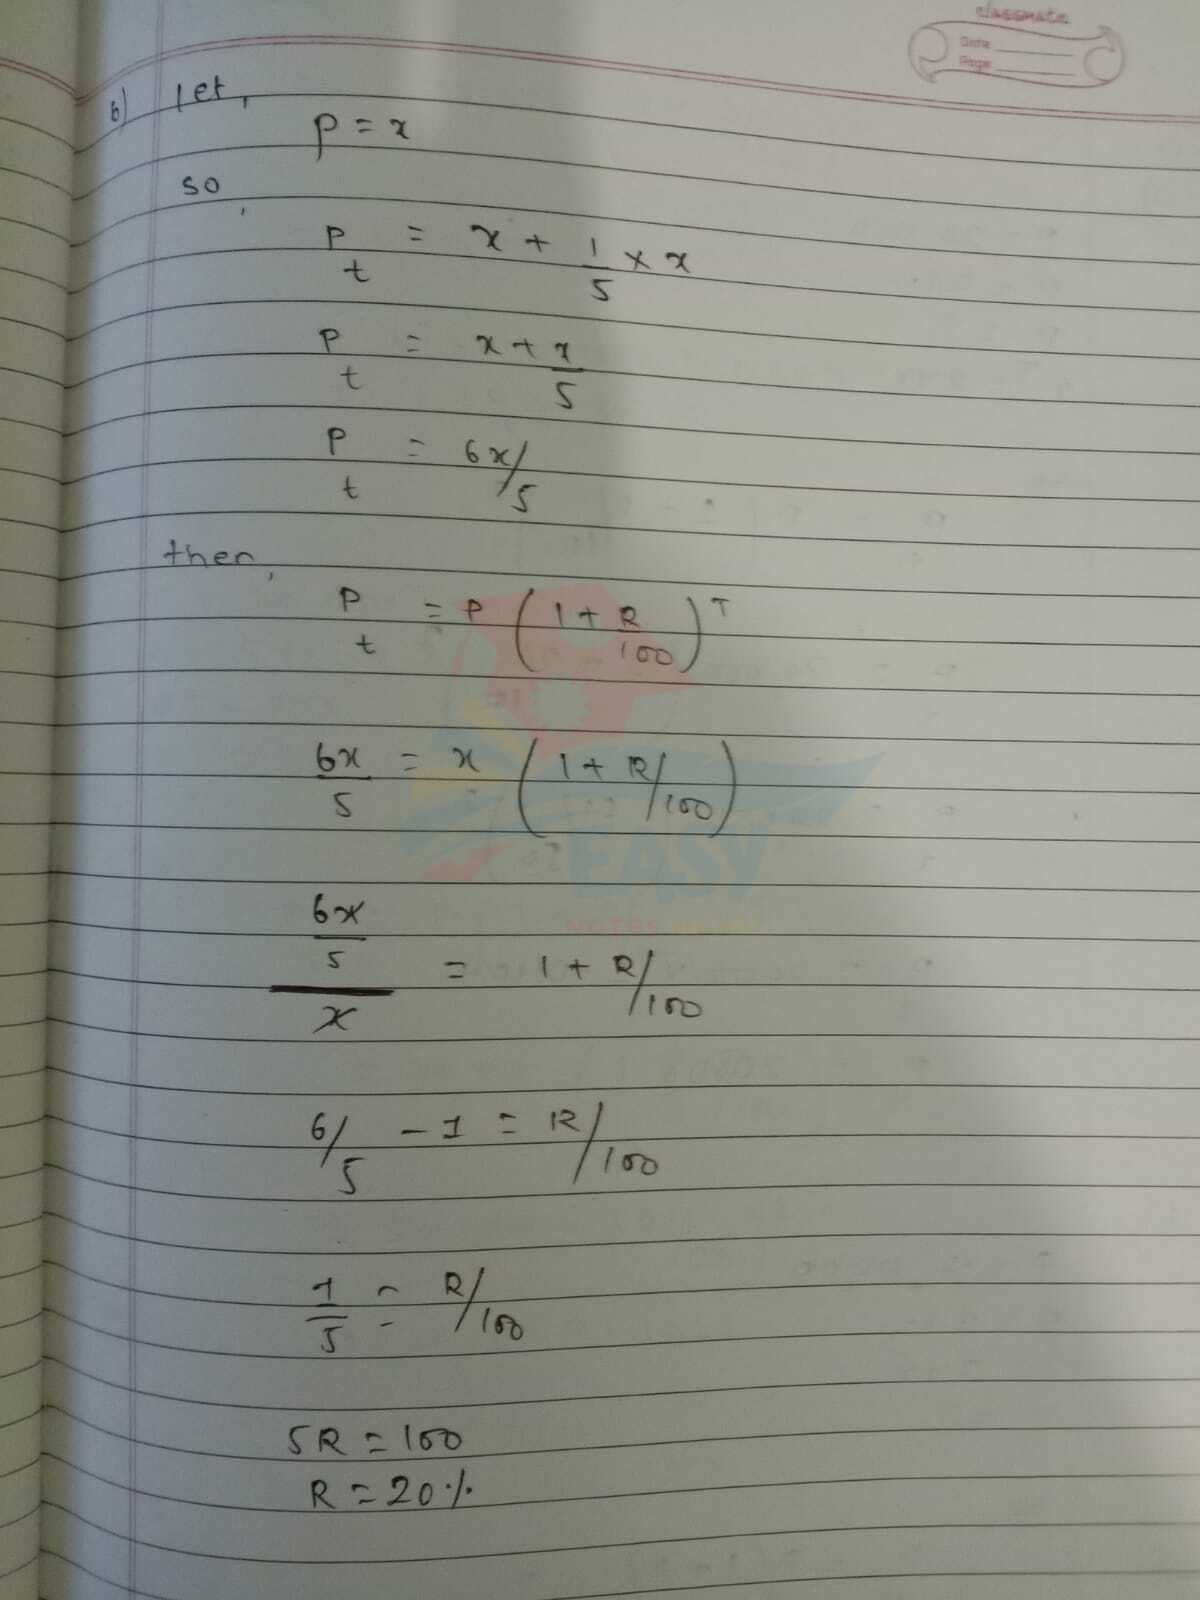 classmate
Date
Page
6) let,
P = x
so,
Pt = x + 1/5 × x
Pt = x + x/5
Pt = 6x/5
then,
Pt = P (1 + R/100)^T
6x/5 = x (1 + R/100)
6x/5 / x = 1 + R/100
EASY
NOTES
6/5 - 1 = R/100
1/5 = R/100
5R = 100
R = 20%